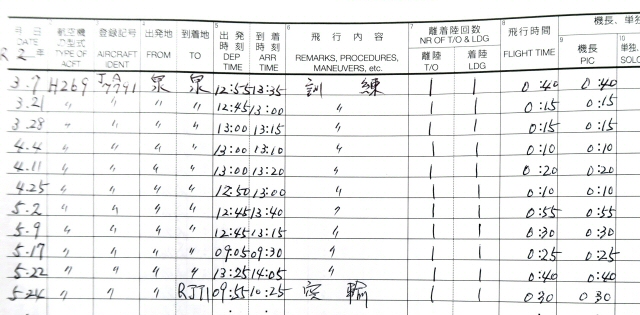 機長、単独
月 日 航空機 登録記号 出発地 到着地 出発 到着 飛行内容 離着陸回数 飛行時間 機長 単独
DATE の型式 時刻 時刻 NR OF T/O & LDG
R 2 年 TYPE OF AIRCRAFT FROM TO DEP ARR REMARKS, PROCEDURES, 離陸 着陸 FLIGHT TIME PIC SOLO
ACFT IDENT TIME TIME MANEUVERS, etc. T/O LDG
3.7 H269 JA7791 泉 泉 12:55 13:35 訓練 1 1 0:40 0:40
3.21 〃 〃 〃 〃 12:45 13:00 〃 1 1 0:15 0:15
3.28 〃 〃 〃 〃 13:00 13:15 〃 1 1 0:15 0:15
4.4 〃 〃 〃 〃 13:00 13:10 〃 1 1 0:10 0:10
4.11 〃 〃 〃 〃 13:00 13:20 〃 1 1 0:20 0:20
4.25 〃 〃 〃 〃 12:50 13:00 〃 1 1 0:10 0:10
5.2 〃 〃 〃 〃 12:45 13:40 〃 1 1 0:55 0:55
5.9 〃 〃 〃 〃 12:45 13:15 〃 1 1 0:30 0:30
5.17 〃 〃 〃 〃 09:05 09:30 〃 1 1 0:25 0:25
5.22 〃 〃 〃 〃 13:25 14:05 〃 1 1 0:40 0:40
5.24 〃 〃 〃 09:55 10:25 空輸 1 1 0:30 0:30